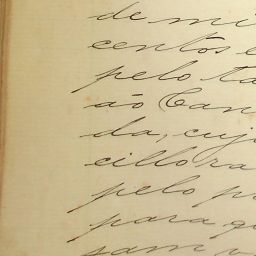 de mi
centos e
pelo ta
ão Can
da, cuj
cillo ra
pelo p
para q
sam v